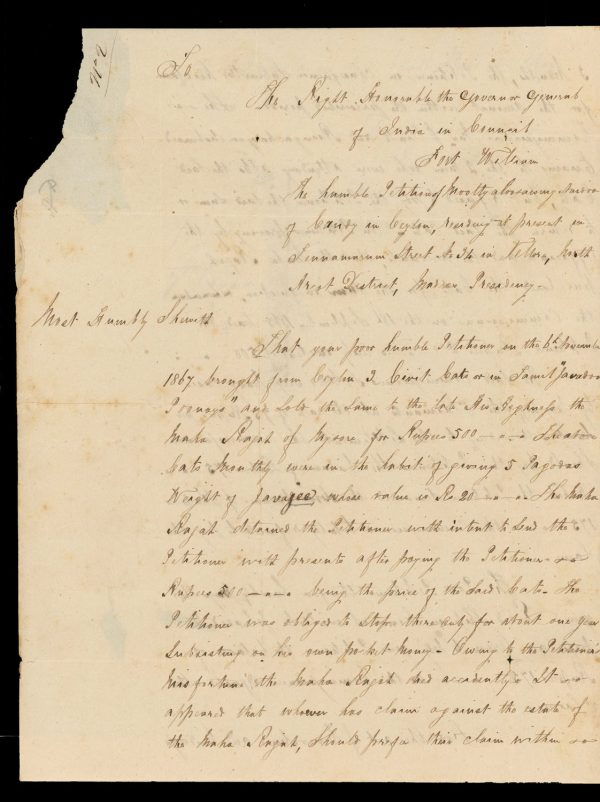 No 2
To
The Right Honorable the Governor General
of India in Council
Fort William
The humble Petition of Mootyaloosawmy
of Candy in Ceylon, residing at present in
Street No 34 in Vellore, North
Arcot District, Madras Presidency.
Most Humbly Sheweth
That your poor humble Petitioner on the 6th November
1867 brought from Ceylon 2 Civet Cats or in Tamil
and Sold the same to the late His Highness the
Maha Rajah of Mysore for Rupees 500 -"-"- These
Cats Monthly were in the habit of giving 5 Pagodas
Weight of Javajee whose value is Rs 20 -"-"- The Maha
Rajah detained the Petitioner with intent to Send the
Petitioner with presents after paying the Petitioner
Rupees 500 -"-"- being the price of the Said Cats. The
Petitioner was obliged to Stop there for about one year
Subsisting on his own pocket money - Owing to the Petitioner
Misfortune the Maha Rajah died accidently. It
appeared that whoever has claim against the estate of
the Maha Rajah, Should prefer their claim within